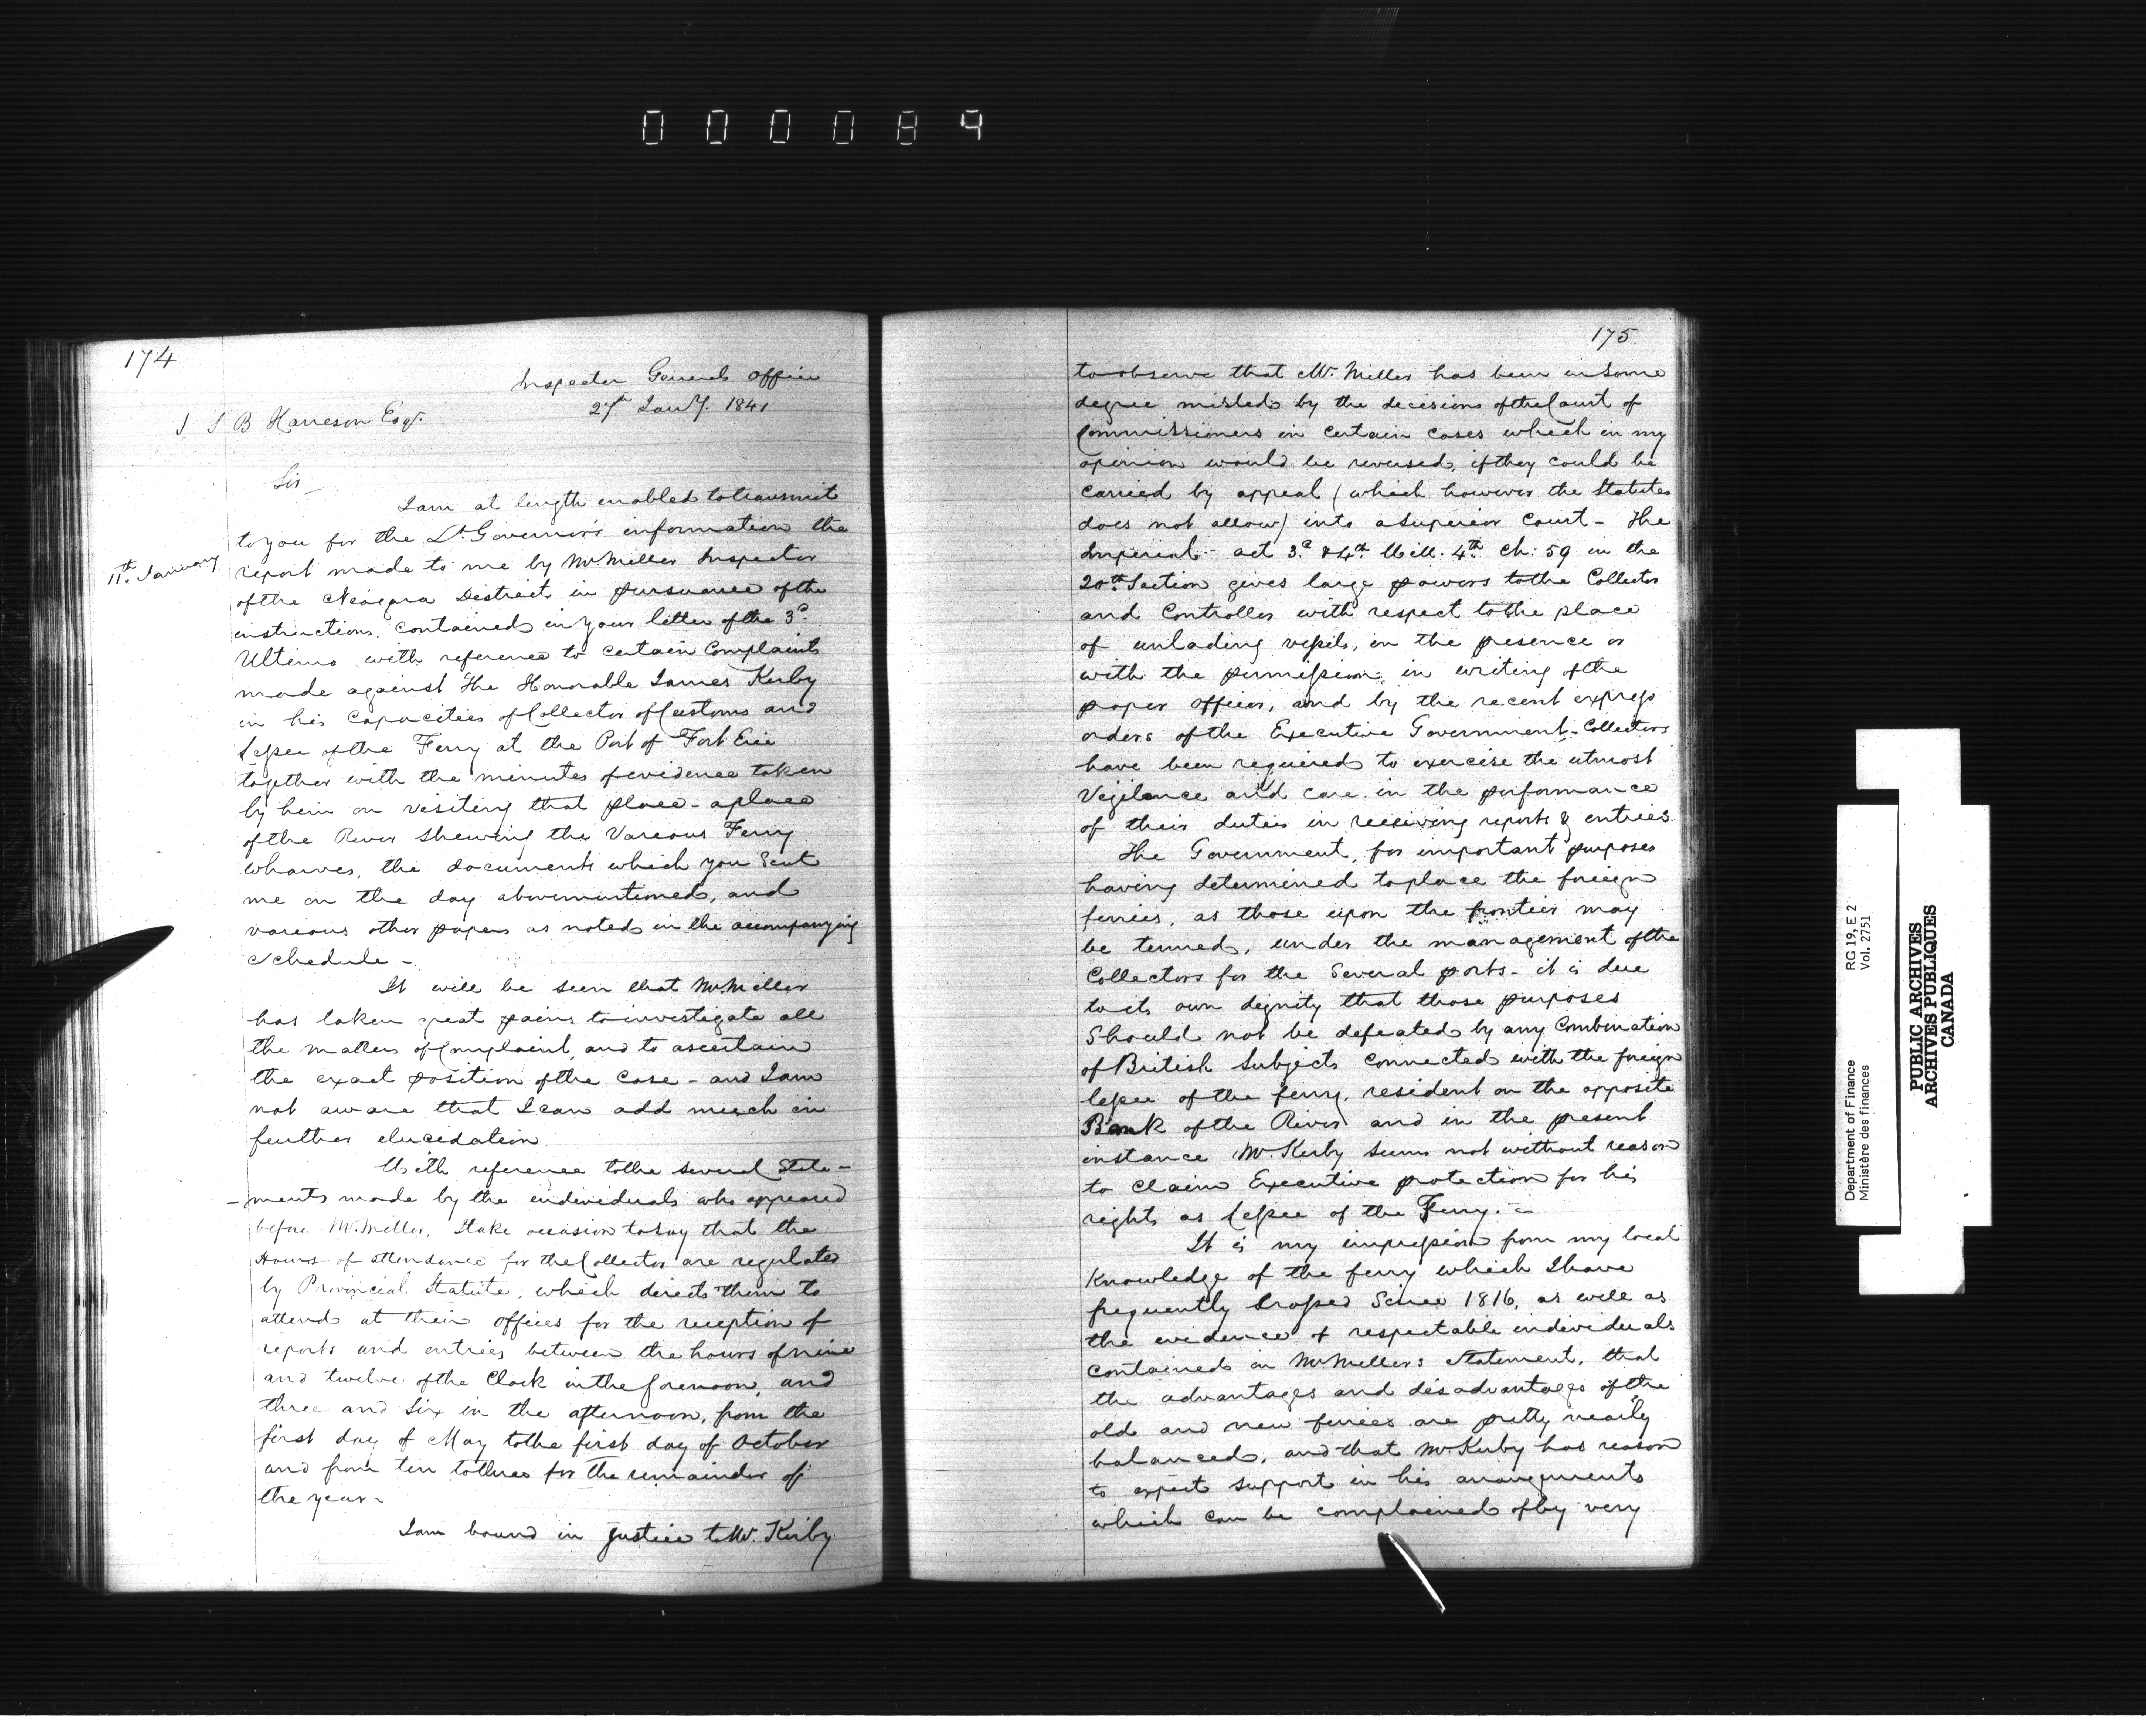 000089
174
Inspector Generals Office
27th Jany. 1841
S B Harreson Esqr.
Sir
I am at length enabled to transmit
to you for the Lt. Governor's information the
11th January
report made to me by Mr. Miller Inspector
of the Niagara District in pursuance of the
instructions contained in your letter of the 3d
Ultimo with reference to certain Complaints
made against the Honorable James Kerby
in his Capacities of Collector of Customs and
Lessee of the Ferry at the Port of Fort Erie
together with the minutes of evidence taken
by him on visiting that place - a place
of the River Shewing the Various Ferry
wharves, the documents which you Sent
me on the day abovementioned, and
various other papers as noted in the accompanying
Schedule -
It will be seen that Mr. Miller
has taken great pains to investigate all
the matters of Complaint, and to ascertain
the exact position of the Case - and I am
not aware that I can add much in
further elucidation
With reference to the several State-
-ments made by the individuals who appeared
before Mr. Miller, I take occasion to say that the
Hours of attendance for the Collector are regulated
by Provincial Statute, which directs them to
attend at their offices for the reception of
reports and entries between the hours of nine
and twelve of the Clock in the forenoon, and
three and Six in the afternoon, from the
first day of May to the first day of October
and from ten to three for the remainder of
the year -
I am bound in justice to Mr. Kerby
175
to observe that Mr. Miller has been in some
degree misled by the decisions of the Court of
Commissioners in certain cases which in my
opinion would be reversed, if they could be
carried by appeal (which however the Statutes
does not allow) into a Superior Court - The
Imperial act 3d & 4th Will. 4th Ch: 59 in the
20th Section gives large powers to the Collector
and Controller with respect to the place
of unlading vessels, in the presence or
with the permission in writing of the
proper officer, and by the recent express
orders of the Executive Government - Collectors
have been required to exercise the utmost
Vigilance and care in the performance
of their duties in receiving reports & entries.
The Government, for important purposes
having determined to place the foreign
ferries, as those upon the frontier may
be termed, under the management of the
Collectors for the Several ports - it is due
to its own dignity that those purposes
Should not be defeated by any Combination
of British Subjects connected with the foreign
lessee of the ferry, resident on the opposite
Bank of the River and in the present
instance Mr. Kerby seems not without reason
to claim Executive protection for his
rights as Lessee of the Ferry. -
It is my impression from my local
Knowledge of the ferry which I have
frequently crossed Since 1816, as well as
the evidence of respectable individuals
contained in Mr. Millers Statement, that
the advantages and disadvantages of the
old and new ferries are pretty nearly
balanced, and that Mr. Kerby has reason
to expect support in his arrangements
which can be complained of by very
Department of Finance
Ministère des finances
RG 19, E 2
Vol. 2751
PUBLIC ARCHIVES
ARCHIVES PUBLIQUES
CANADA